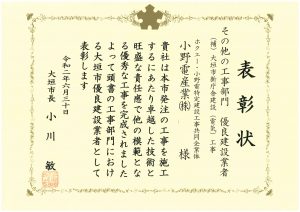 表彰状
その他の工事部門　優良建設業者
（補）大垣市新庁舎建設（電気）工事
ホクエー・小野電特定建設工事共同企業体
小野電産業㈱　様
貴社は本市発注の工事を施工
するにあたり卓越した技術と
旺盛な責任感で他の模範とな
る優秀な工事を完成されました
よって頭書の工事部門におけ
る大垣市優良建設業者として
表彰します
令和二年六月三十日
大垣市長　小川　敏